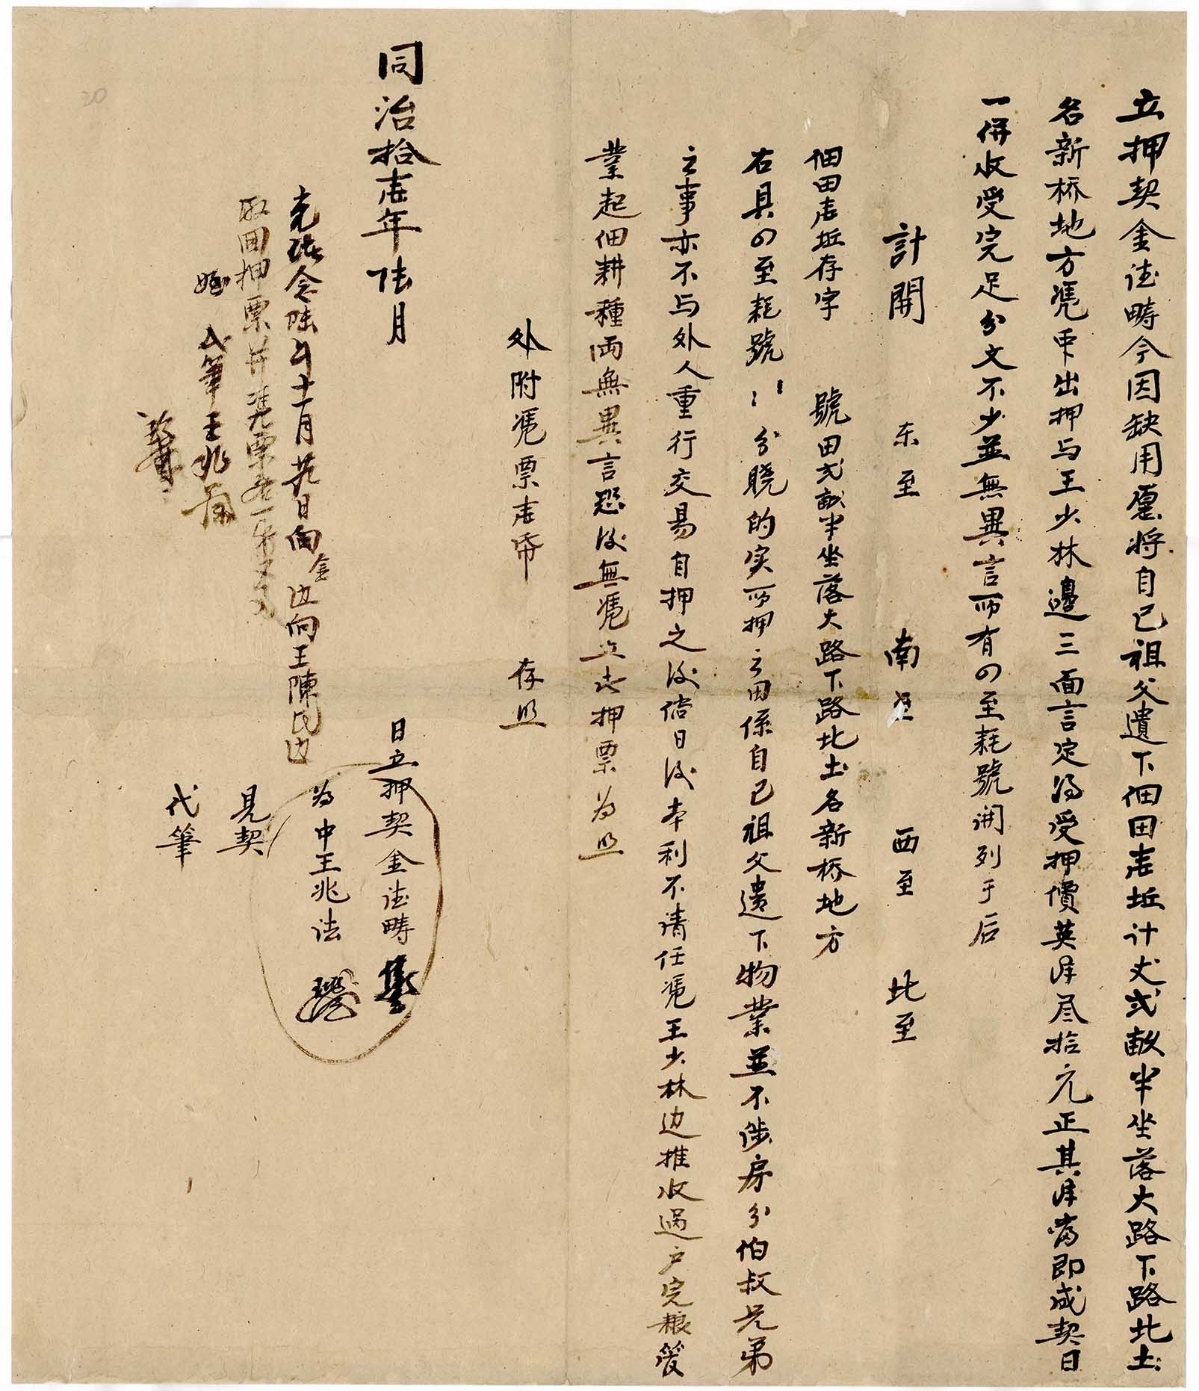 立押契金法疇今因缺用愿將自己祖父遺下佃田壹坵计丈弍畝半坐落大路下路北土
名新桥地方凴中出押与王少林邊三面言定得受押價英洋叁拾元正其洋当即成契日
一併收受完足分文不少並無異言所有四至耗號開列于后
計開 东至 南至 西至 北至
佃田壹坵存字 號田弍畝半坐落大路下路北土名新桥地方
右具四至耗號 分曉的实所押之田係自己祖父遺下物業並不涉房分伯叔兄弟
之事亦不与外人重行交易自押之後倘日後本利不请任凴王少林边推收過户完粮管
業起佃耕種両無異言恐後無凴立此押票为照
外附凴票壹帋 存照
同治拾壹年陆月 日立押契金法疇
为中王兆法
見契
代筆
光绪念陆年十一月 日向金边向王陳氏边
取回押票并凴票
代筆王兆